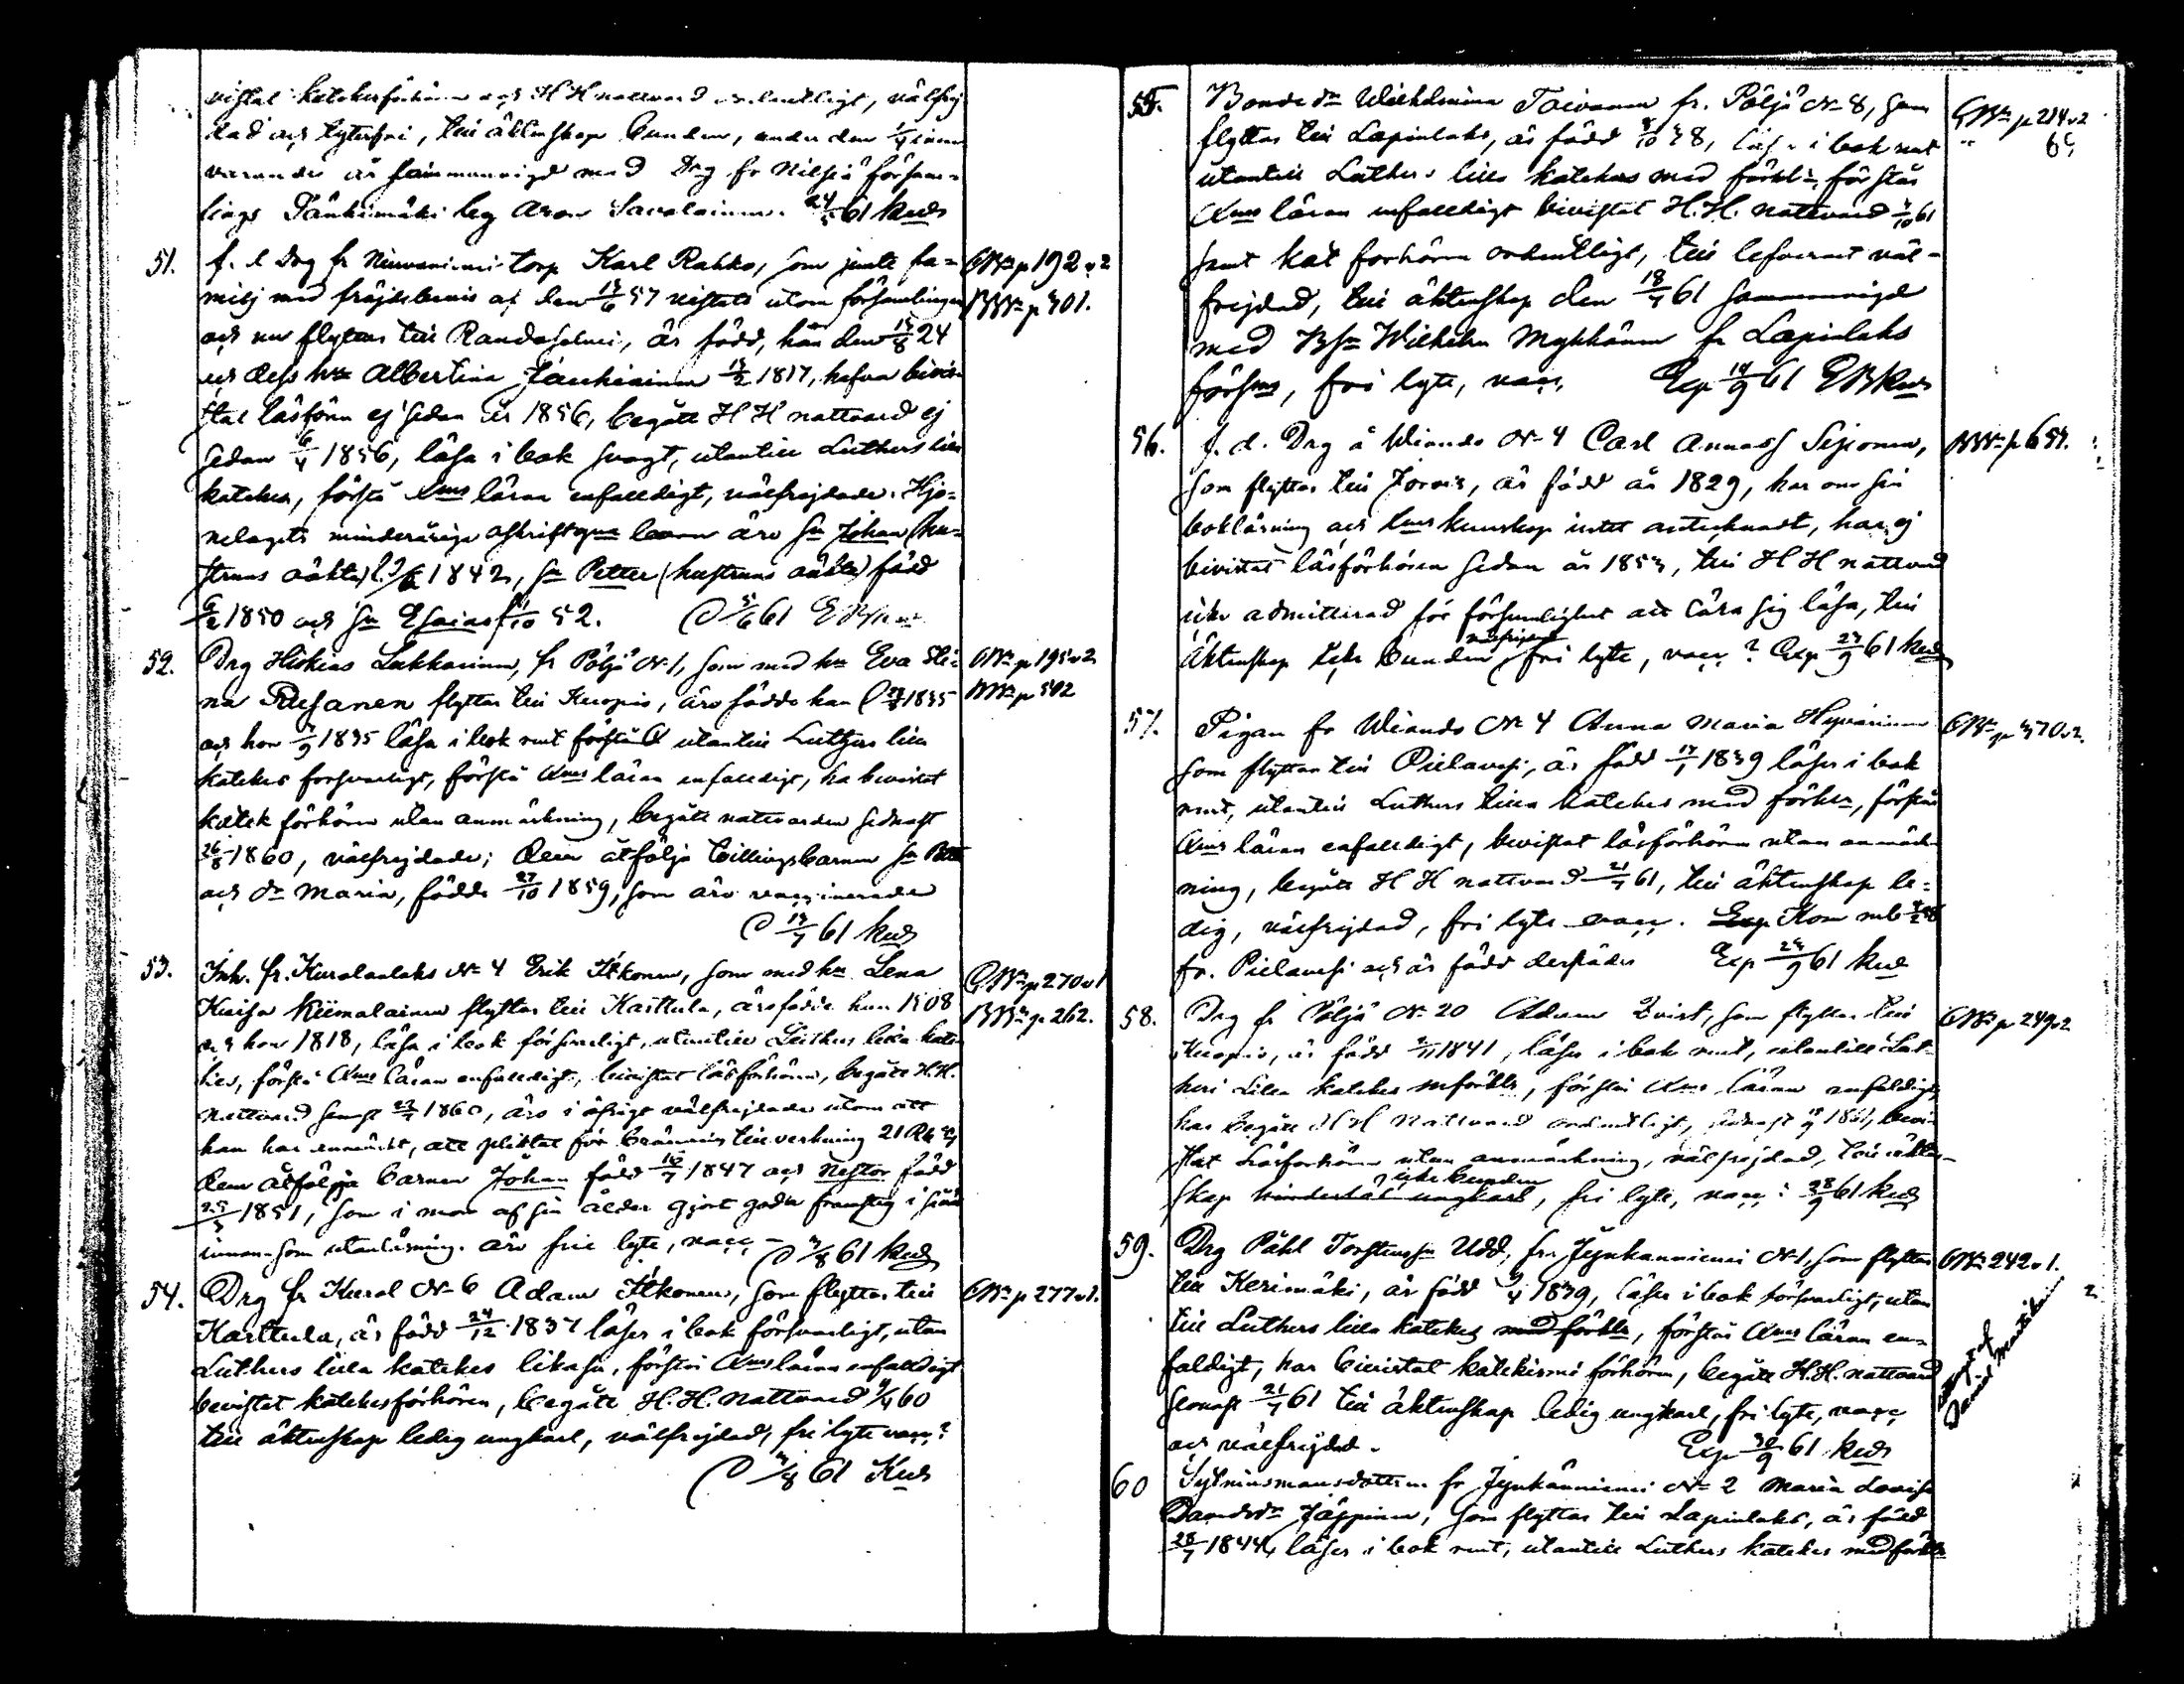 vistat katekesförhören och H H nattvard ordentligt, välfrej
dad och lytesfri, till äktenskap bunden, under den 1/4 inne
varande år sammanvigd med Drg fr Nilsiä försam=
lings Pänkimäki by Aron Savolainen. 61 kws
51. f. d Drg fr Niuvaniemi torp Karl Rahko, som jemte fa= CBn p 192 v 2
milj med fräjdebevis af den 13/6 57 vistats utom församlingen BBn p 301.
och nu flyttar till Randasalmi, är född, han den 13/8 24
och dess hu Albertina Jauhiainen 13/2 1817, hafva bivis=
tat läsförhör ej sedan år 1856, begått H H nattvard ej
sedan 6/4 1856, läsa i bok svagt, utantill Luthers lilla
kateches, förstå Xnms läran enfaldigt, välfrejdade. Hjo=
nelagets minderåriga barn äro Sn Johan (hu=
struns oäkta) 1842, Sn Petter (hustruns oäkta) född
1850 och Sn Esaias /10 52. 5/6 61
52. Drg Hiskias Lukkarinen, fr Pöljä N 1, som med hu Eva Hele CBn p 195 v 2
na Rusanen flyttar till Kuopio, äro födde han 1835 BBn p 592
och hon 7/9 1835 läsa i bok rent förstå utantill Luthers lilla
katekes försvarligt, förstå Xnms läran enfaldigt, ha bivistat
katek förhören utan anmärkning, begått nattvarden sednast
26/8 1860, välfrejdade; Dem åtfölja tvillingsbarnen Sn
och dr Maria, födde 27/10 1859, som äro vaccinerade
13/7 61 kws
53. Inh. fr. Kurolanlaks N 4 Erik Itkonen, som med hu Lena CBn p 270 v 1
Kaisa Riimalainen flyttar till Karttula, äro födde han 1808 BBn p 262.
och hon 1818, läsa i bok försvarligt, utantill Luthers lilla kate
kes, förstå Xnms läran enfaldigt, bivistat läsförhören, begått H.H.
nattvard senast 22/7 1860, äro i öfrigt välfrejdade utom att
han har anmärkt, att pliktat för brännvins tillverkning 21 Rb
Dem åtfölja barnen Johan född 16/7 1847 och Nestor född
25/3 1851, som i mon af sin ålder gjort goda framsteg i såväl
innan- som utanläsning. äro fria lyte, vacc - 3/8 61 kws
54. Drg fr Kurol N 6 Adam Itkonen, som flyttar till CBn p 277 v 1.
Karttula, är född 24/12 1837 läser i bok försvarligt, utan
Luthers lilla katekes likaså, förstår Xnms läran enfaldigt
bevistat katekesförhören, begått H.H. nattvard 60
till äktenskap ledig ungkarl, välfrejdad, fri lyte vacc?
3/8 61 Kws
55. Bonde dr Wilhelmina Toivanen fr. Pöljä N 8, som CBn p 214 v 2
flyttar till Lapinlaks, är född 8/10 38, läser i bok rent " 65
utantill Luthers lilla katekes med förkl:, förstår
Xnms läran enfaldigt bivistat H.H. nattvard 61
samt kat förhören ordentligt, till lefvernet väl=
frejdad, till äktenskap den 18/7 61 sammanvigd
med BSn Wilhelm Mykkänen fr Lapinlaks
förs., fri lyte, vacc, Exp 14/9 61 EBkws
56. f. d. Drg å Wiando N 4 Carl Annass Sijonen, BBn p 654.
som flyttar till Jorois, är född år 1829, har om sin
bokläsning och Xnms kunskap intet antecknadt, har ej
bivistat läsförhören sedan år 1853, till H H nattvard
icke admitterad för försumlighet att lära sig läsa, till
äktenskap icke bunden välfrejdad fri lyte, vacc? Exp 23/9 61 kws
57. Pigan fr Wiando N 4 Anna Maria Hyvärinen CBn p 370 v 2.
som flyttar till Pielavesi, är född 17/1 1839 läser i bok
rent, utantill Luthers lilla katekes med förkl:, förstår
Xnms läran enfaldigt, bevistat läsförhören utan anmärk
ning, begått H H nattvard 21/7 61, till äktenskap le=
dig, välfrejdad, fri lyte vacc. Exp Kom
fr. Pielavesi och är född derstädes Exp 24/9 61 kws
58. Drg fr Pöljä N 20 Adam Qvist, som flyttar till CBn p 249 v 2
Kuopio, är född 1841, läser i bok rent, utantill Lut=
heri Lilla katekes m förkl:, förstår Xnms läran enfaldigt
har begått H H Nattvard ordentligt, sednast 1861, bevis
tat Läsförhören utan anmärkning, välfrejdad, till äkten=
skap icke bunden ungkarl, fri lyte, vacc: 28/9 61 kws
59. Drg Påhl Torstensn Udd, fr Jynkänniemi N 1, som flyttar CBn 242 v 1.
till Kerimäki, är född 9/4 1839, läser i bok försvarligt, utan
till Luthers lilla katekes med förkl:, förstår Xnms läran en=
faldigt, har bivistat katekismi förhören, begått H.H. nattvard
senast 21/7 61 till äktenskap ledig ungkarl, fri lyte, vacc
och välfrejdad. Exp 30/9 61 kws
60 Sytningsmansdottern fr Jynkänniemi N 2 Maria Lovisa
Davidsdr Jäppinen, som flyttar till Lapinlaks, är född
28/7 1844, läser i bok rent, utantill Luthers katekes med förkl: